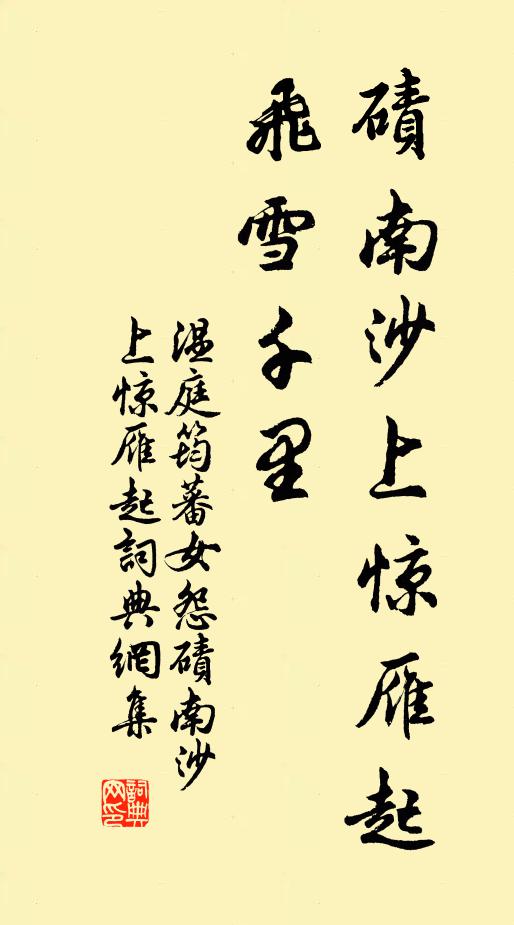 磧南沙上惊雁起
飛雪千里
温庭筠蕃女怨磧南沙
上惊雁起詞典網集
詞典
网印